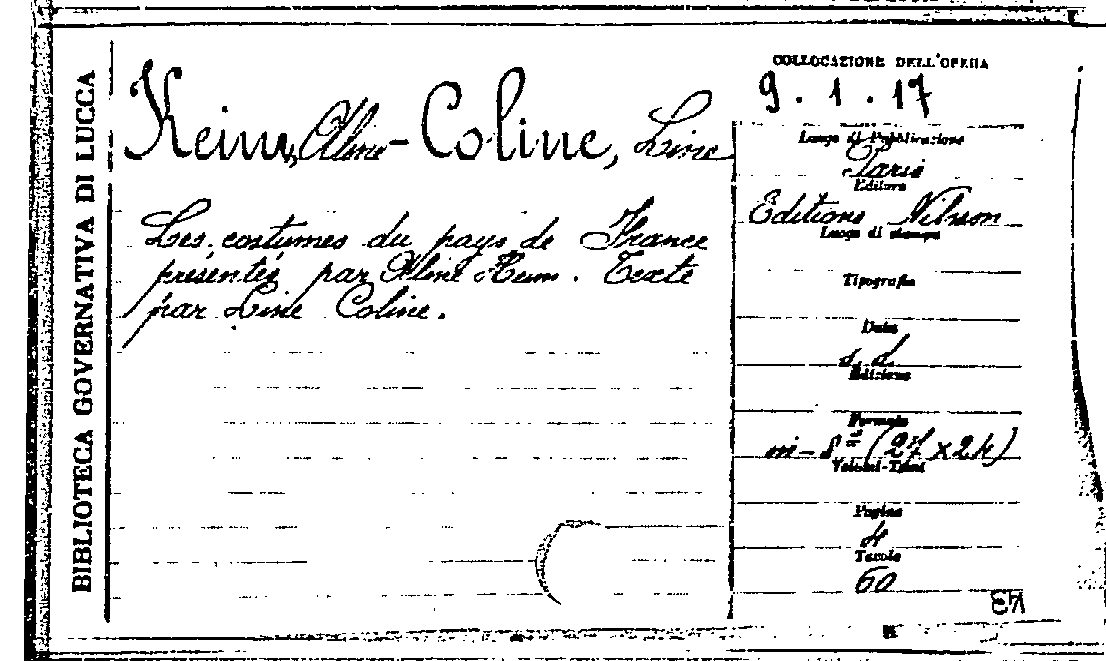 BIBLIOTECA GOVERNATIVA DI LUCCA
Keim, Aline - Coline, Line
Les costumes du pays de France
présentés par Aline Keim. Texte
par Line Coline.
COLLOCAZIONE DELL'OPERA
9.1.17
Luogo di Pubblicazione
Paris
Editore
Editions Nilsson
Luogo di stampa
Tipografia
Data
s.d.
Edizione
Formato
in-8º (27x24)
Volumi-Tomi
Pagine
4
Tavole
60